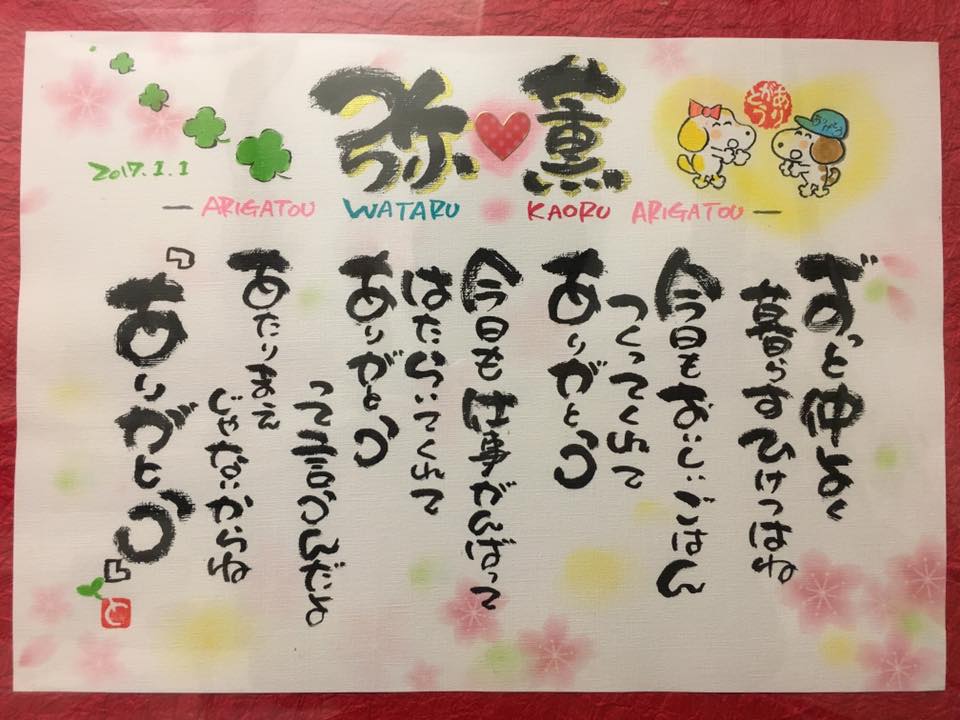 弥 薫
ありがとう
ありがとう
2017.1.1
ARIGATOU WATARU KAORU ARIGATOU
ずっと仲よく
暮らすひけつはね
今日もおいしいごはん
つくってくれて
ありがとう
今日も仕事がんばって
はたらいてくれて
ありがとう
って言うんだよ
あたりまえ
じゃないからね
『ありがとう』
と